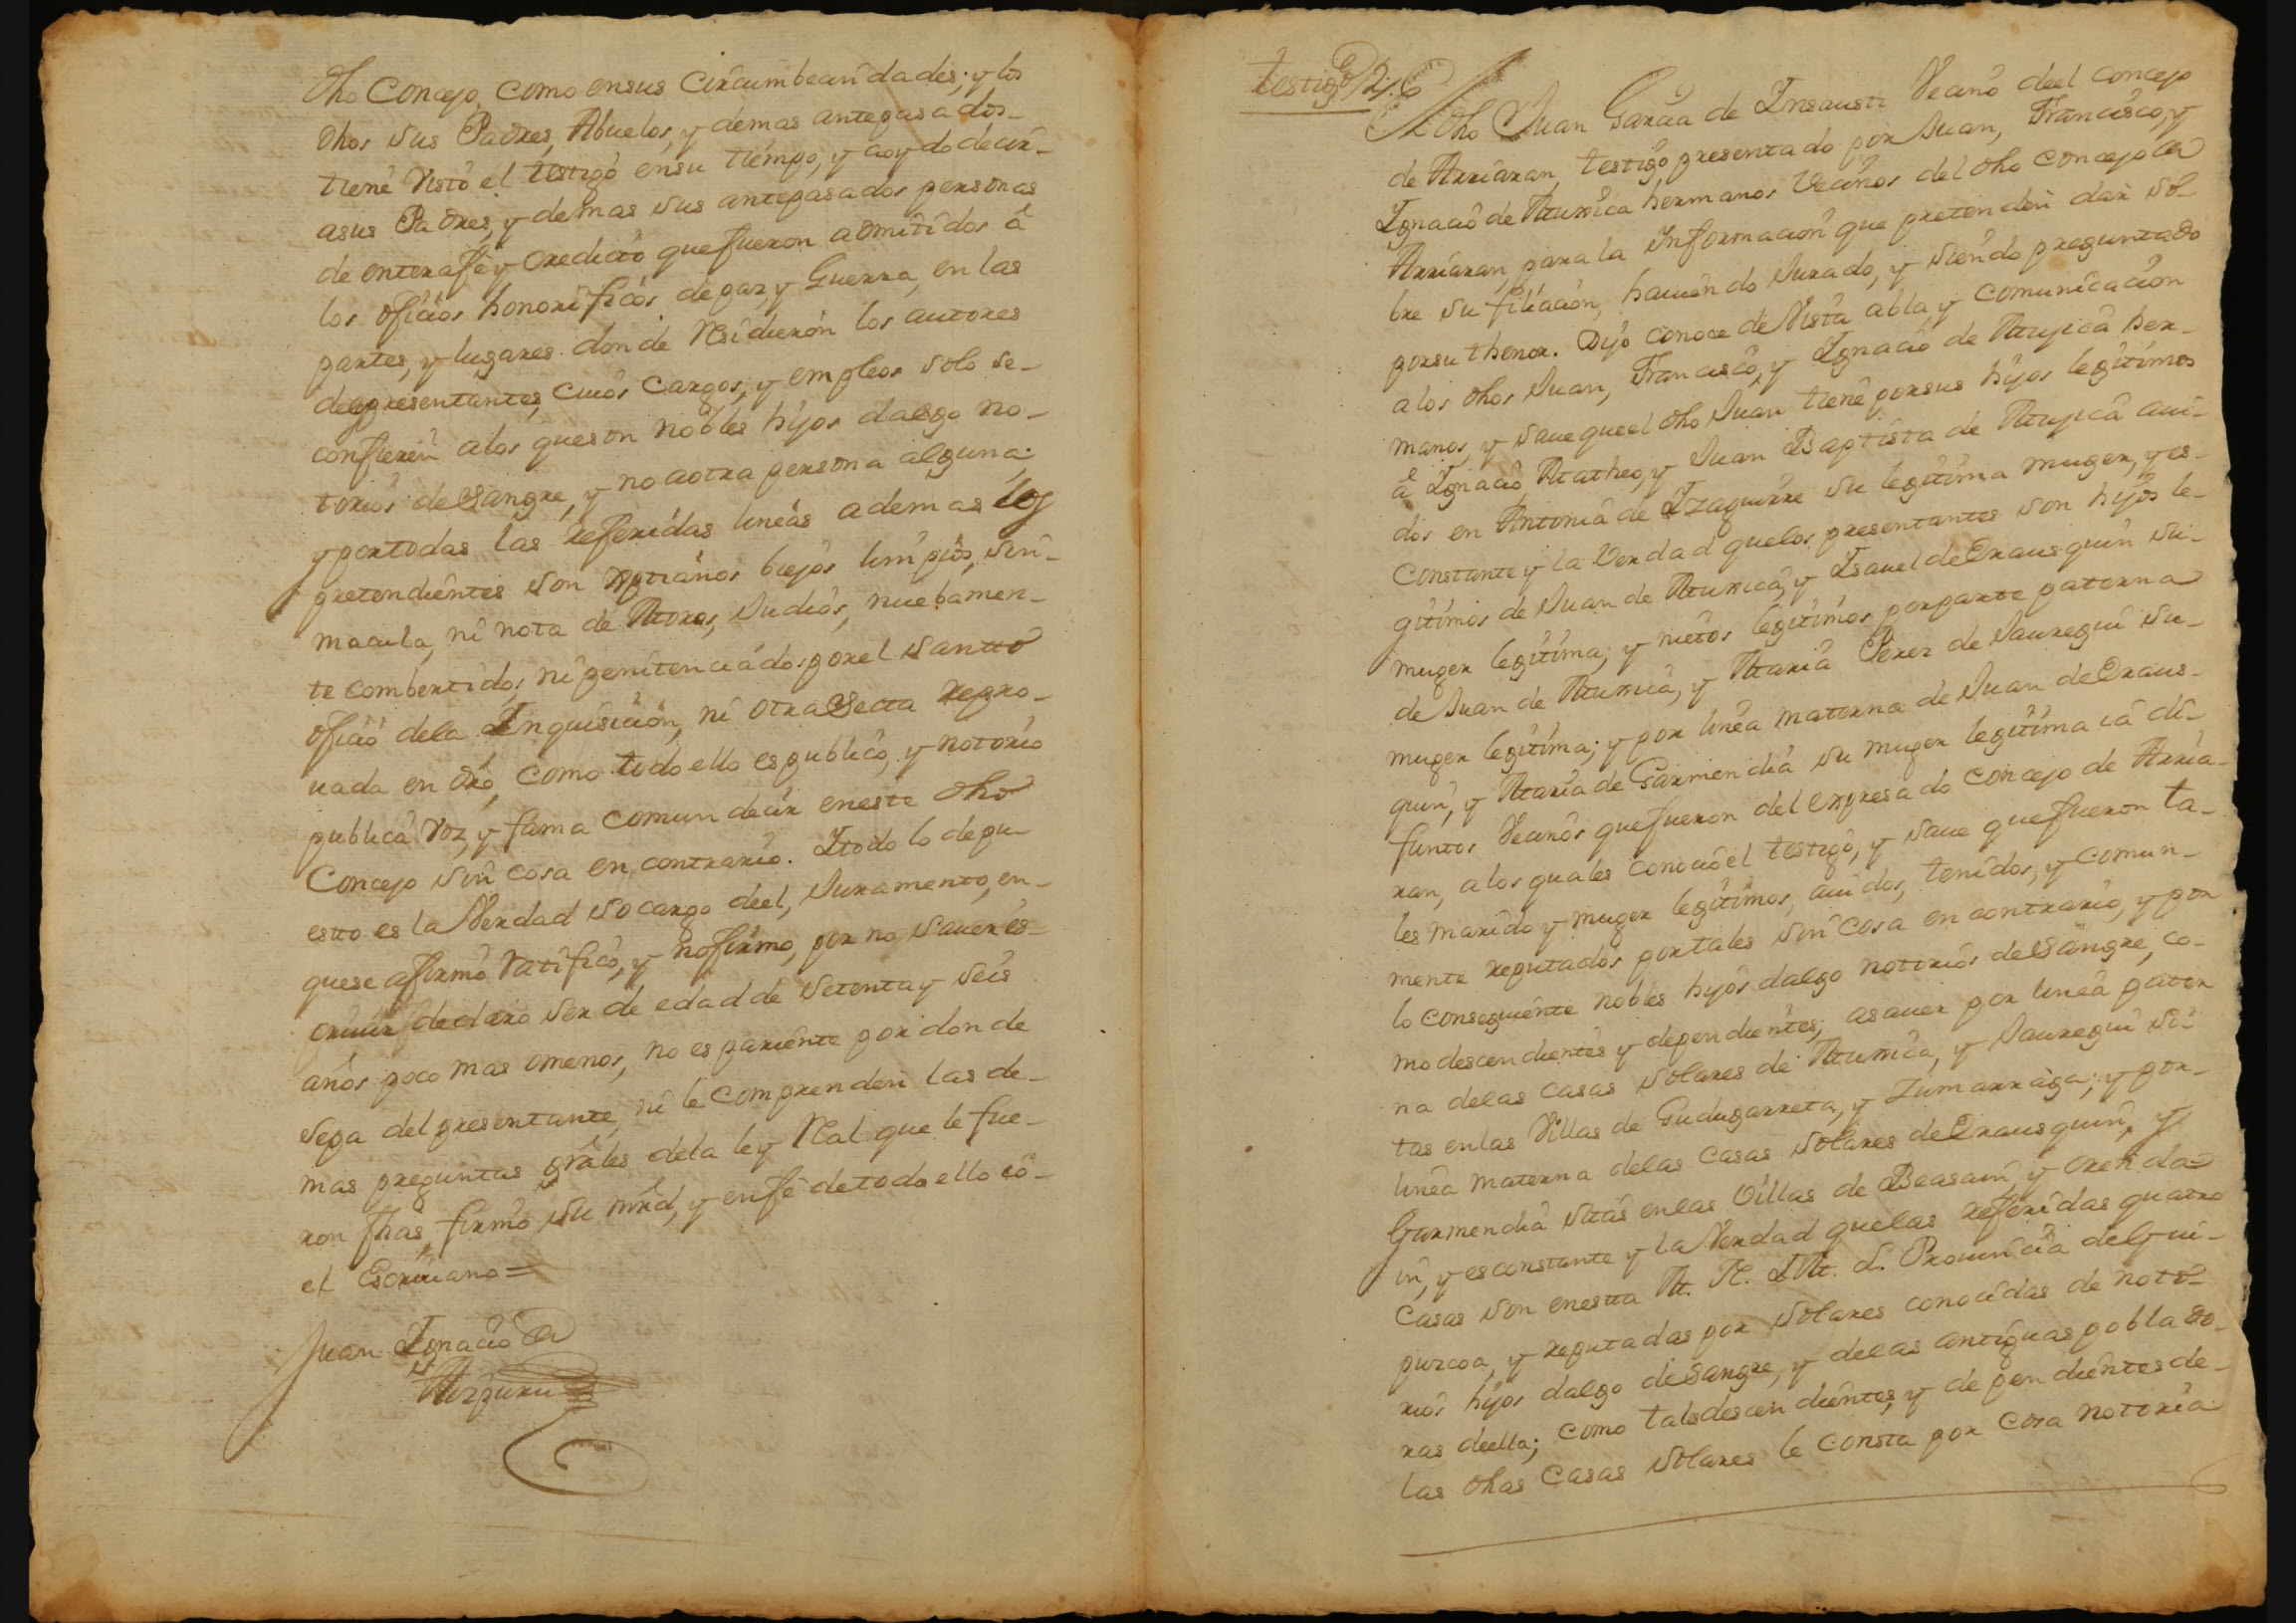 dho Concejo, como ensus Circumbecinidades; y los
dhos sus Padres, Abuelos, y demas antepasados
tiene Visto el testigo ensu tiempo, y aoydo decir
asus Padres, y demas sus antepasados personas
de enterafe y credicto quefueron admitidos â
los oficios honorificos de paz, y Guerra, en las
partes, y lugares donde Residieron los autores
delospresentantes, cuios Cargos, y empleos solo se
confieren alos queson nobles hijos dalgo no-
torios deSangre, y no aotra persona alguna;
y portodas las referidas lineas ademas los
pretendientes son xptianos biejos limpios, sin
macula, ni nota de Moros, Judios, nuebamen-
te combertidos, ni penitenciados porel Santto
oficio dela Inquisicion, ni otraSecta repro-
uada en dro, como todo ello es publico, y notorio
publica Voz, y fama comun decir eneste dho
Concejo sin cosa en contrario. Itodo lo depu-
esto es la Verdad so cargo deel, Juramento, en-
quese afirmò Ratificò, y nofirmo, por no sauer es=
criuir declaro ser de edad de Setenta y seis
años poco mas omenos, no es pariente por donde
sepa del presentante, ni le comprenden las de-
mas preguntas grâles dela ley Real que le fue-
ron fhas, firmò su mrd, y enfè detodo ello iô-
el Escriuano=
Juan Ignacio de
Aizpuru
testigo 2,,6
El dho Juan Garcia de Insausti Vecino deel concejo
de Arriaran, testigo presentado por Juan, Francisco, y
Ignacio de Muxica hermanos Vecinos del dho concejo de
Arriaran, para la Informacion que pretenden dar so-
bre su filiacion, hauiendo Jurado, y siendo preguntado
porsu thenor. Dijo conoce de Vista abla, y comunicacion
alos dhos Juan, Francisco, y Ignacio de Mujica her-
manos, y saue queel dho Juan tiene porsus hijos legitimos
â Ignacio Matheo, y Juan Baptista de Mujica aui-
dos en Antonia de Izaguirre su legitima muger, y es-
Constante y la Verdad quelos presentantes son hijos le-
gitimos de Juan de Muxica, y Isauel deErausquin su-
muger legitima; y nietos legitimos porparte paterna
de Juan de Muxica, y Maria Perez de Jauregui su-
muger legitima; y por linea materna de Juan deEraus-
quin, y Maria de Garmendia su muger legitima ia di-
funtos Vecinos quefueron del expresado Concejo de Arria-
ran, alos quales conociò el testigo, y saue quefueron ta-
les marido y muger legitimos, auidos, tenidos, y comun-
mente reputados portales sin cosa en contrario, y por
lo conseguiente nobles hijos dalgo notorios deSangre, co-
mo descendientes y dependientes; asauer por linea pater
na delas casas Solares de Muxica, y Jauregui si-
tas enlas Villas de Gudugarreta, y Zumarraga; y por-
linea materna delas Casas Solares deErausquin, y
Garmendia sitas enlas Villas de Beasain, y Orendâ=
in, y es constante y la Verdad quelas referidas quatro
Casas son enesta M. N. I M. L. Prouincia deGui-
puzcoa, y reputadas por Solares conocidas de noto-
rios hijos dalgo deSangre, y delas antiguas poblado-
ras deella; como tales descendientes, y dependientes de-
las dhas Casas Solares le consta por Cosa notoria